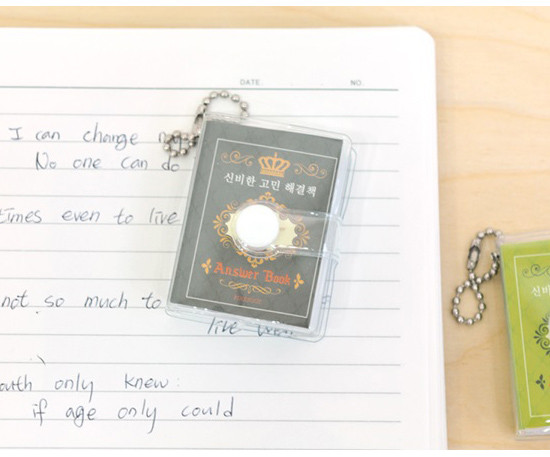 DATE. . . NO.
I can change
No one can do
times even to live
not so much to
live
outh only knew:
if age only could
신비한 고민 해결책
Answer Book
신비